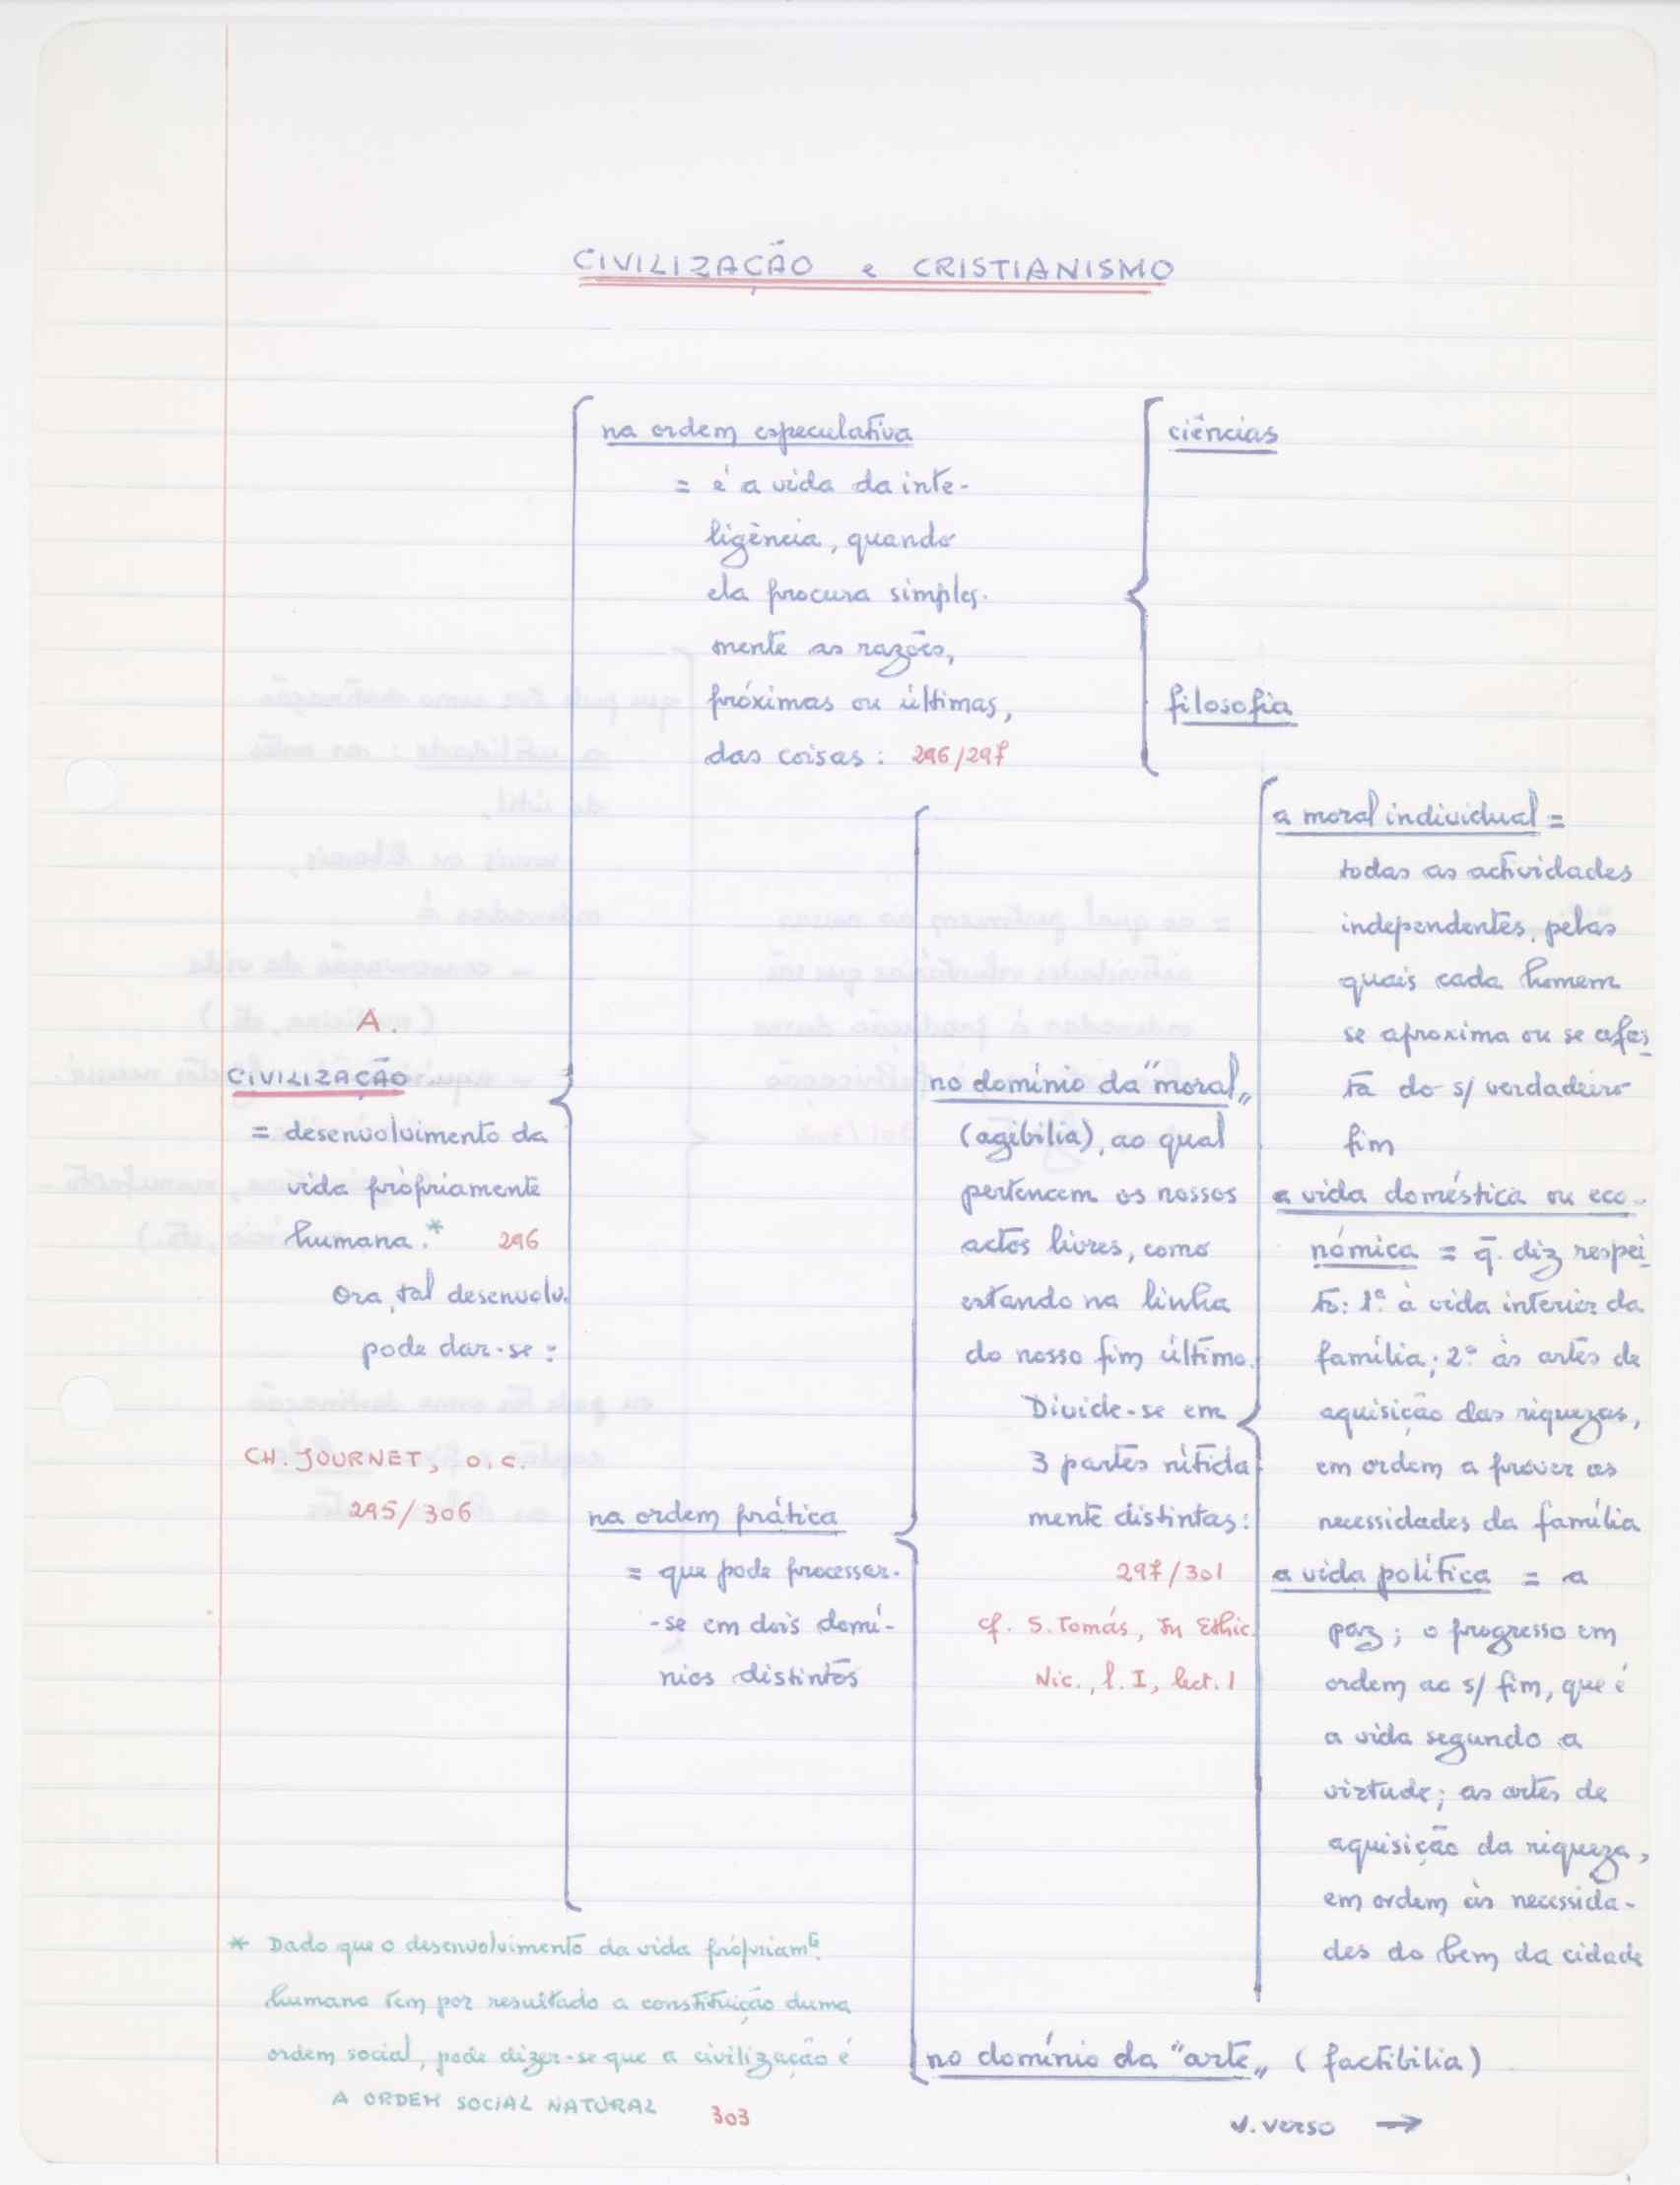 CIVILIZAÇÃO e CRISTIANISMO
na ordem especulativa
= é a vida da inte-
ligência, quando
ela procura simples-
mente as razões,
próximas ou últimas,
das coisas : 296/297
ciências
filosofia
A.
CIVILIZAÇÃO
= desenvolvimento da
vida pròpriamente
humana.* 296
Ora, tal desenvolv.
pode dar-se :
CH. JOURNET, o. c.
295/306
na ordem prática
= que pode processar-
-se em dois domí-
nios distintos
no domínio da "moral„
(agibilia), ao qual
pertencem os nossos
actos livres, como
estando na linha
do nosso fim último.
Divide-se em
3 partes nìtida
mente distintas:
297/301
cf. S. Tomás, In Ethic.
Nic., l. I, lect. 1
a moral individual =
todas as actividades
independentes, pelas
quais cada homem
se aproxima ou se afas
ta do s/ verdadeiro
fim
a vida doméstica ou eco-
nómica = q̄. diz respei
to: 1º à vida interior da
família; 2º às artes de
aquisição das riquezas,
em ordem a prover as
necessidades da família
a vida política = a
paz; o progresso em
ordem ao s/ fim, que é
a vida segundo a
virtude; as artes de
aquisição da riqueza,
em ordem às necessida-
des do bem da cidade
no domínio da "arte„ (factibilia)
v. verso →
* Dado que o desenvolvimento da vida pròpriamᵗᵉ
humana tem por resultado a constituição duma
ordem social, pode dizer-se que a civilização é
A ORDEM SOCIAL NATURAL 303